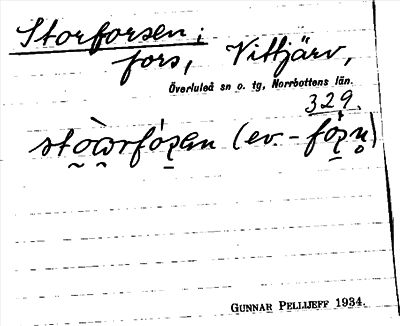 Storforsen;
fors, Vittjärv,
Överluleå sn o. tg, Norrbottens län.
329.
GUNNAR PELLIJEFF 1934.